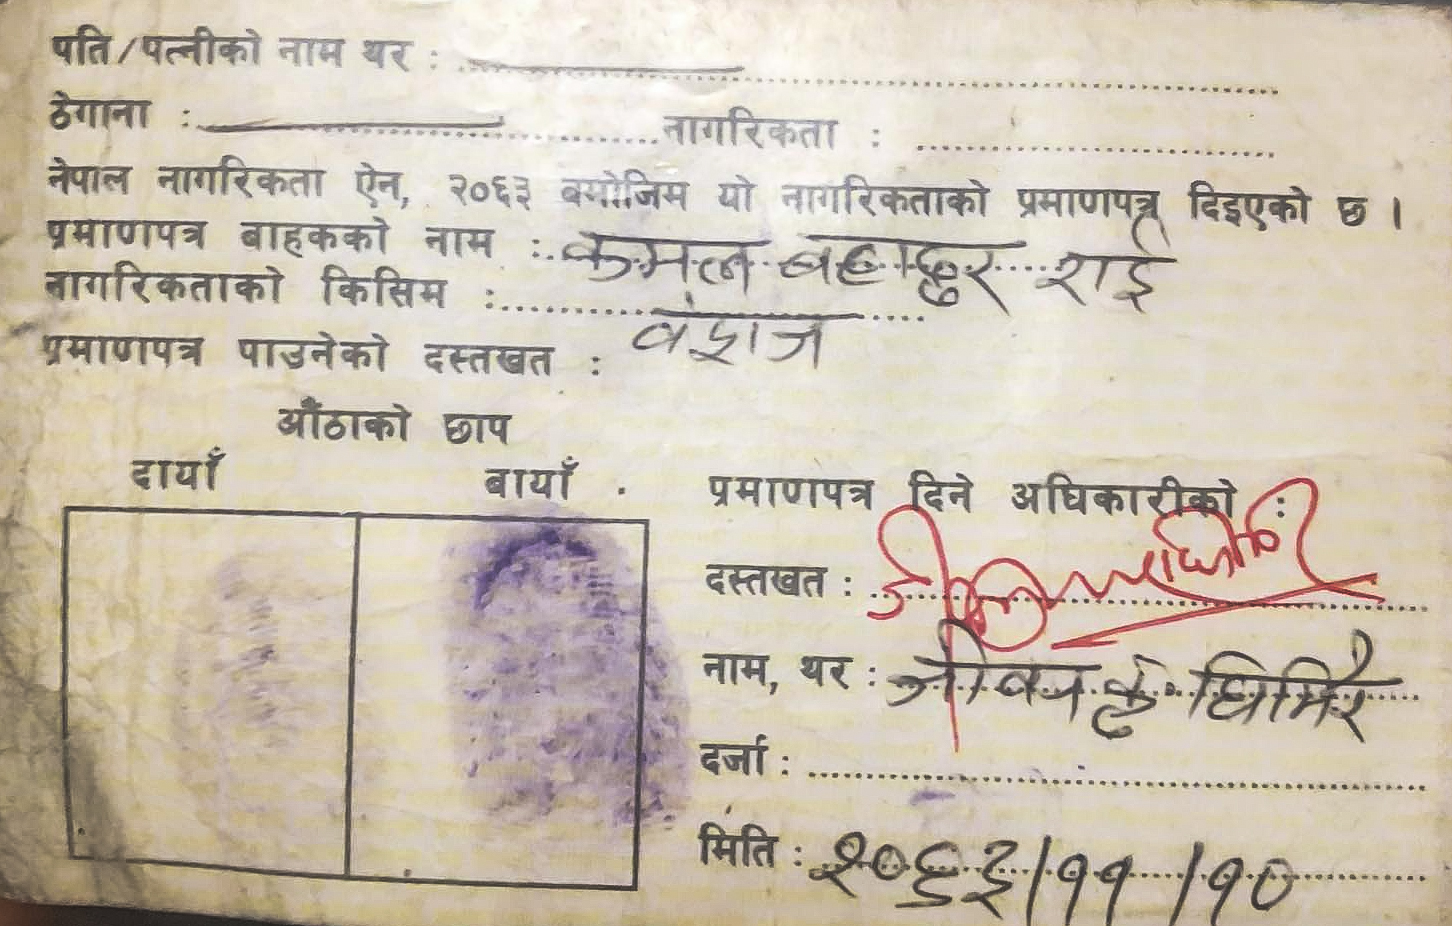 पति/पत्नीको नाम थर :
ठेगाना : नागरिकता :
नेपाल नागरिकता ऐन, २०६३ बमोजिम यो नागरिकताको प्रमाणपत्र दिइएको छ ।
प्रमाणपत्र बाहकको नाम : कमल बहादुर राई
नागरिकताको किसिम : वंशज
प्रमाणपत्र पाउनेको दस्तखत :
औंठाको छाप
दायाँ बायाँ
प्रमाणपत्र दिने अधिकारीको :
दस्तखत :
नाम, थर : जीवन कु. घिमिरे
दर्जा :
मिति : २०६३/११/१०